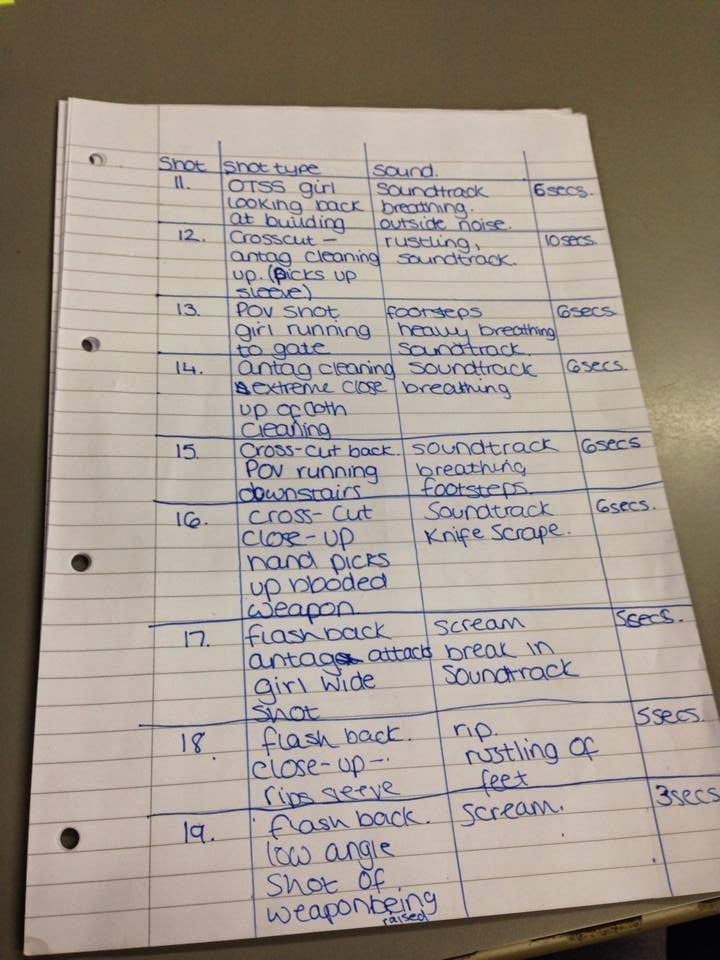 Shot shot type sound.
11. OTSS girl soundtrack 6secs.
looking back breathing.
at building outside noise.
12. Crosscut - rustling, 10secs.
antag cleaning soundtrack.
up. (Picks up
sleeve)
13. POV shot footsteps 6secs
girl running heavy breathing
to gate soundtrack.
14. antag cleaning soundtrack 6secs.
extreme close breathing
up of cloth
cleaning
15. Cross-cut back. soundtrack 6secs
POV running breathing
downstairs footsteps.
16. Cross-cut Soundtrack 6secs.
close-up Knife Scrape.
hand picks
up blooded
weapon
17. flashback scream 5secs.
antag attacks break in
girl wide Soundtrack
shot
18. flash back. rip. 5secs.
close-up - rustling of
rips sleeve feet
19. flash back. scream. 3secs
low angle
shot of
weapon being
raised